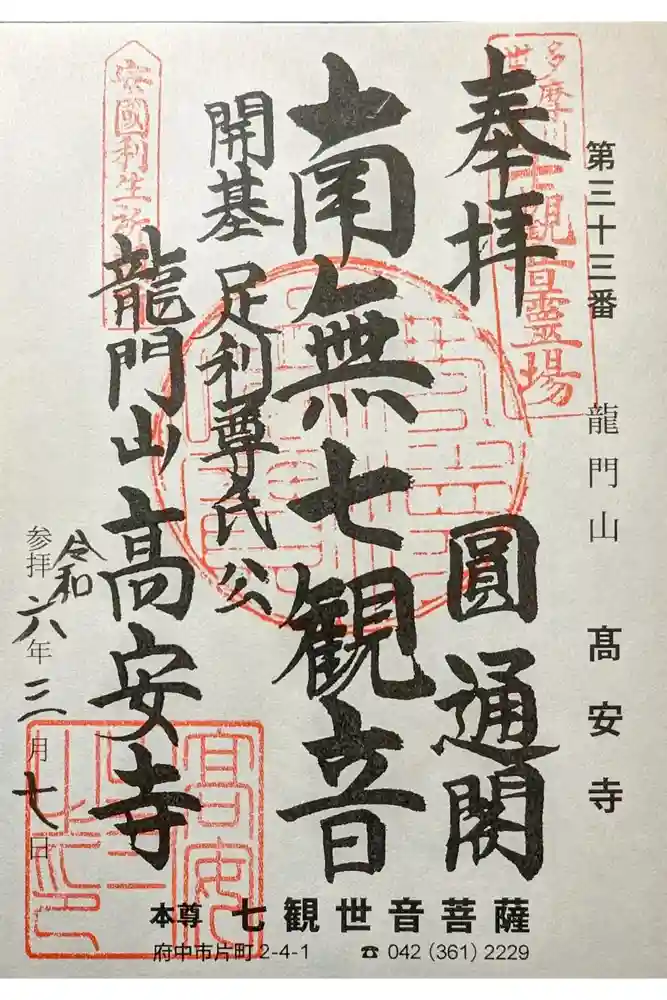 第三十三番 龍門山 髙安寺
多摩川
世
七観音霊場
奉拝 圓通閣
南無七観音
開基 足利尊氏公
安國利生
龍門山 高安寺
高安
参拝 令和六年三月七日
本尊 七観世音菩薩
府中市片町2-4-1 ☎ 042(361)2229